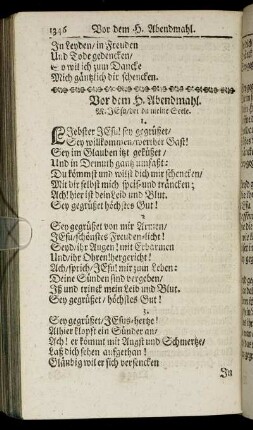 1346 Vor dem H. Abendmahl.
In Leyden/ in Freuden
Und Tode gedencken/
So wil ich zum Dancke
Mich gäntzlich dir schencken.
Vor dem H. Abendmahl.
M. JEsu/ der du meine Seele.
1.
LJebster JEsu! sey gegrüßet/
Sey willkommen/ werther Gast!
Sey im Glauben itzt geküßet/
Und in Demuth gantz umfaßt:
Du kömmst und wilst dich mir schencken/
Mit dir selbst mich speis- und träncken;
Ach! hier ist dein Leib und Blut.
Sey gegrüßet höchstes Gut!
2.
Sey gegrüßet von mir Armen/
JEsu/ schönstes Freuden-licht!
Seyd ihr Augen! mit Erbarmen
Und/ ihr Ohren! hergericht!
Ach/ sprich/ JEsu! mir zum Leben:
Deine Sünden sind vergeben/
Iß und trinck mein Leib und Blut.
Sey gegrüßet/ höchstes Gut!
3.
Sey gegrüßet/ JEsus-hertze!
Allhier klopft ein Sünder an/
Ach! er kömmt mit Angst und Schmertze/
Laß dich sehen aufgethan!
Gläubig wil er sich versencken
In